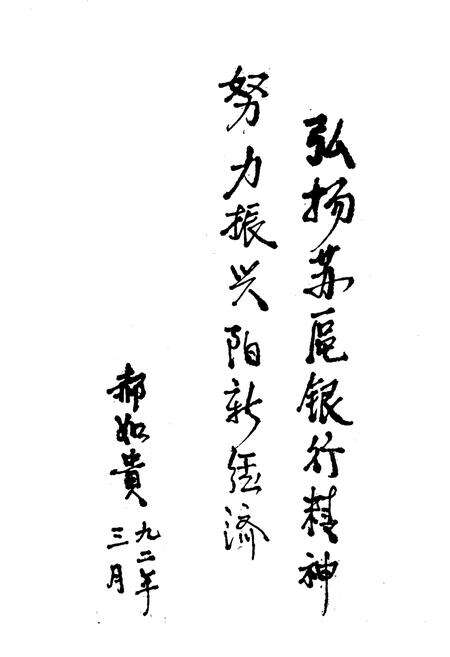 弘扬苏區银行精神
努力振兴阳新経济
郝如貴
九二年
三月